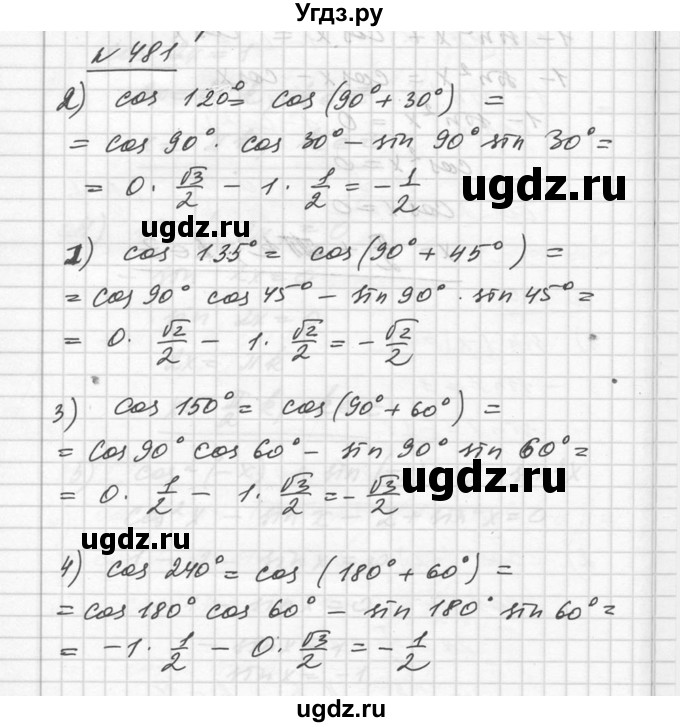 Угдз.ру
№ 481
2) cos 120° = cos (90° + 30°) =
= cos 90° · cos 30° − sin 90° sin 30° =
= 0 · √3/2 − 1 · 1/2 = − 1/2
угдз.ру
угдз.ру
1) cos 135° = cos (90° + 45°) =
= cos 90° cos 45° − sin 90° · sin 45° =
= 0 · √2/2 − 1 · √2/2 = − √2/2
3) cos 150° = cos (90° + 60°) =
= cos 90° cos 60° − sin 90° sin 60° =
= 0 · 1/2 − 1 · √3/2 = − √3/2
угдз.ру
угдз.ру
4) cos 240° = cos (180° + 60°) =
= cos 180° cos 60° − sin 180° sin 60° =
= −1 · 1/2 − 0 · √3/2 = − 1/2
угдз.ру